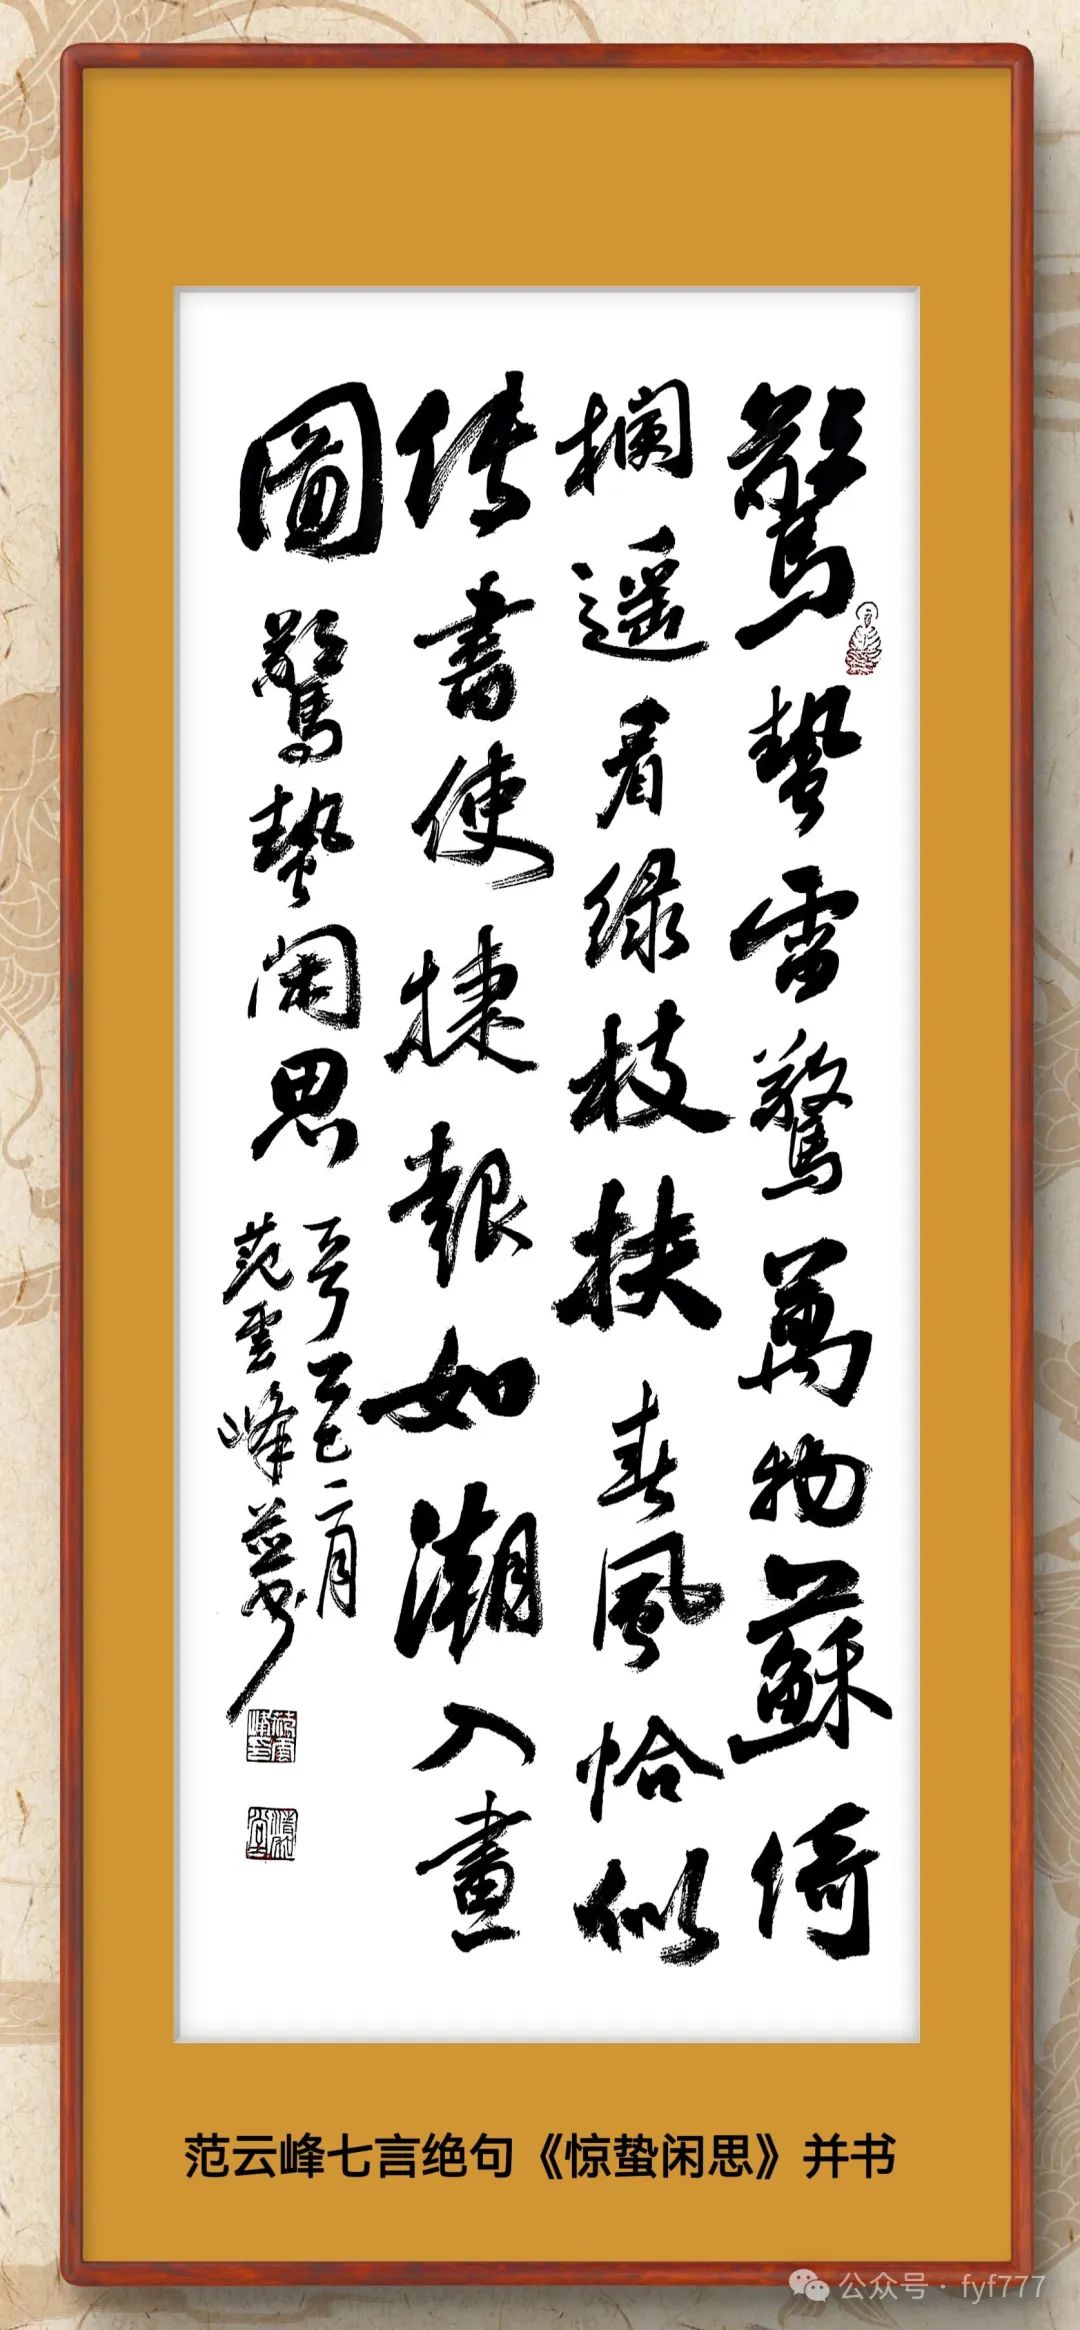 驚蟄雷驚萬物蘇倚
欄遥看绿枝扶春風恰似
传書使捷報如潮入畫
圖驚蟄闲思
乙巳二月
范雲峰并书
范雲峰印
范云峰七言绝句《惊蛰闲思》并书
公众号·fyf777